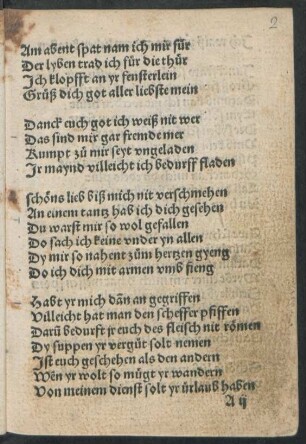 2
Am abent spat nam ich mir für
Der lyben trad ich für die thür
Ich klopfft an yr fensterlein
Grüß dich got aller liebste mein
Danck euch got ich weiß nit wer
Das sind mir gar fremde mer
Kumpt zů mir seyt vngeladen
Ir maynd villeicht ich bedurff fladen
schöns lieb biß mich nit verschmehen
An einem tantz hab ich dich gesehen
Du warst mir so wol gefallen
Do sach ich keine vnder yn allen
Dy mir so nahent zům hertzen gyeng
Do ich dich mit armen vmb fieng
Habt yr mich dañ an gegriffen
Villeicht hat man den scheffer pfiffen
Darū bedurft jr euch des fleisch nit römen
Dy suppen yr vergůt solt nemen
Ist euch geschehen als den andern
Wēn yr wolt so mügt yr wandern
Von meinem dienst solt yr ürlaub haben
A ij